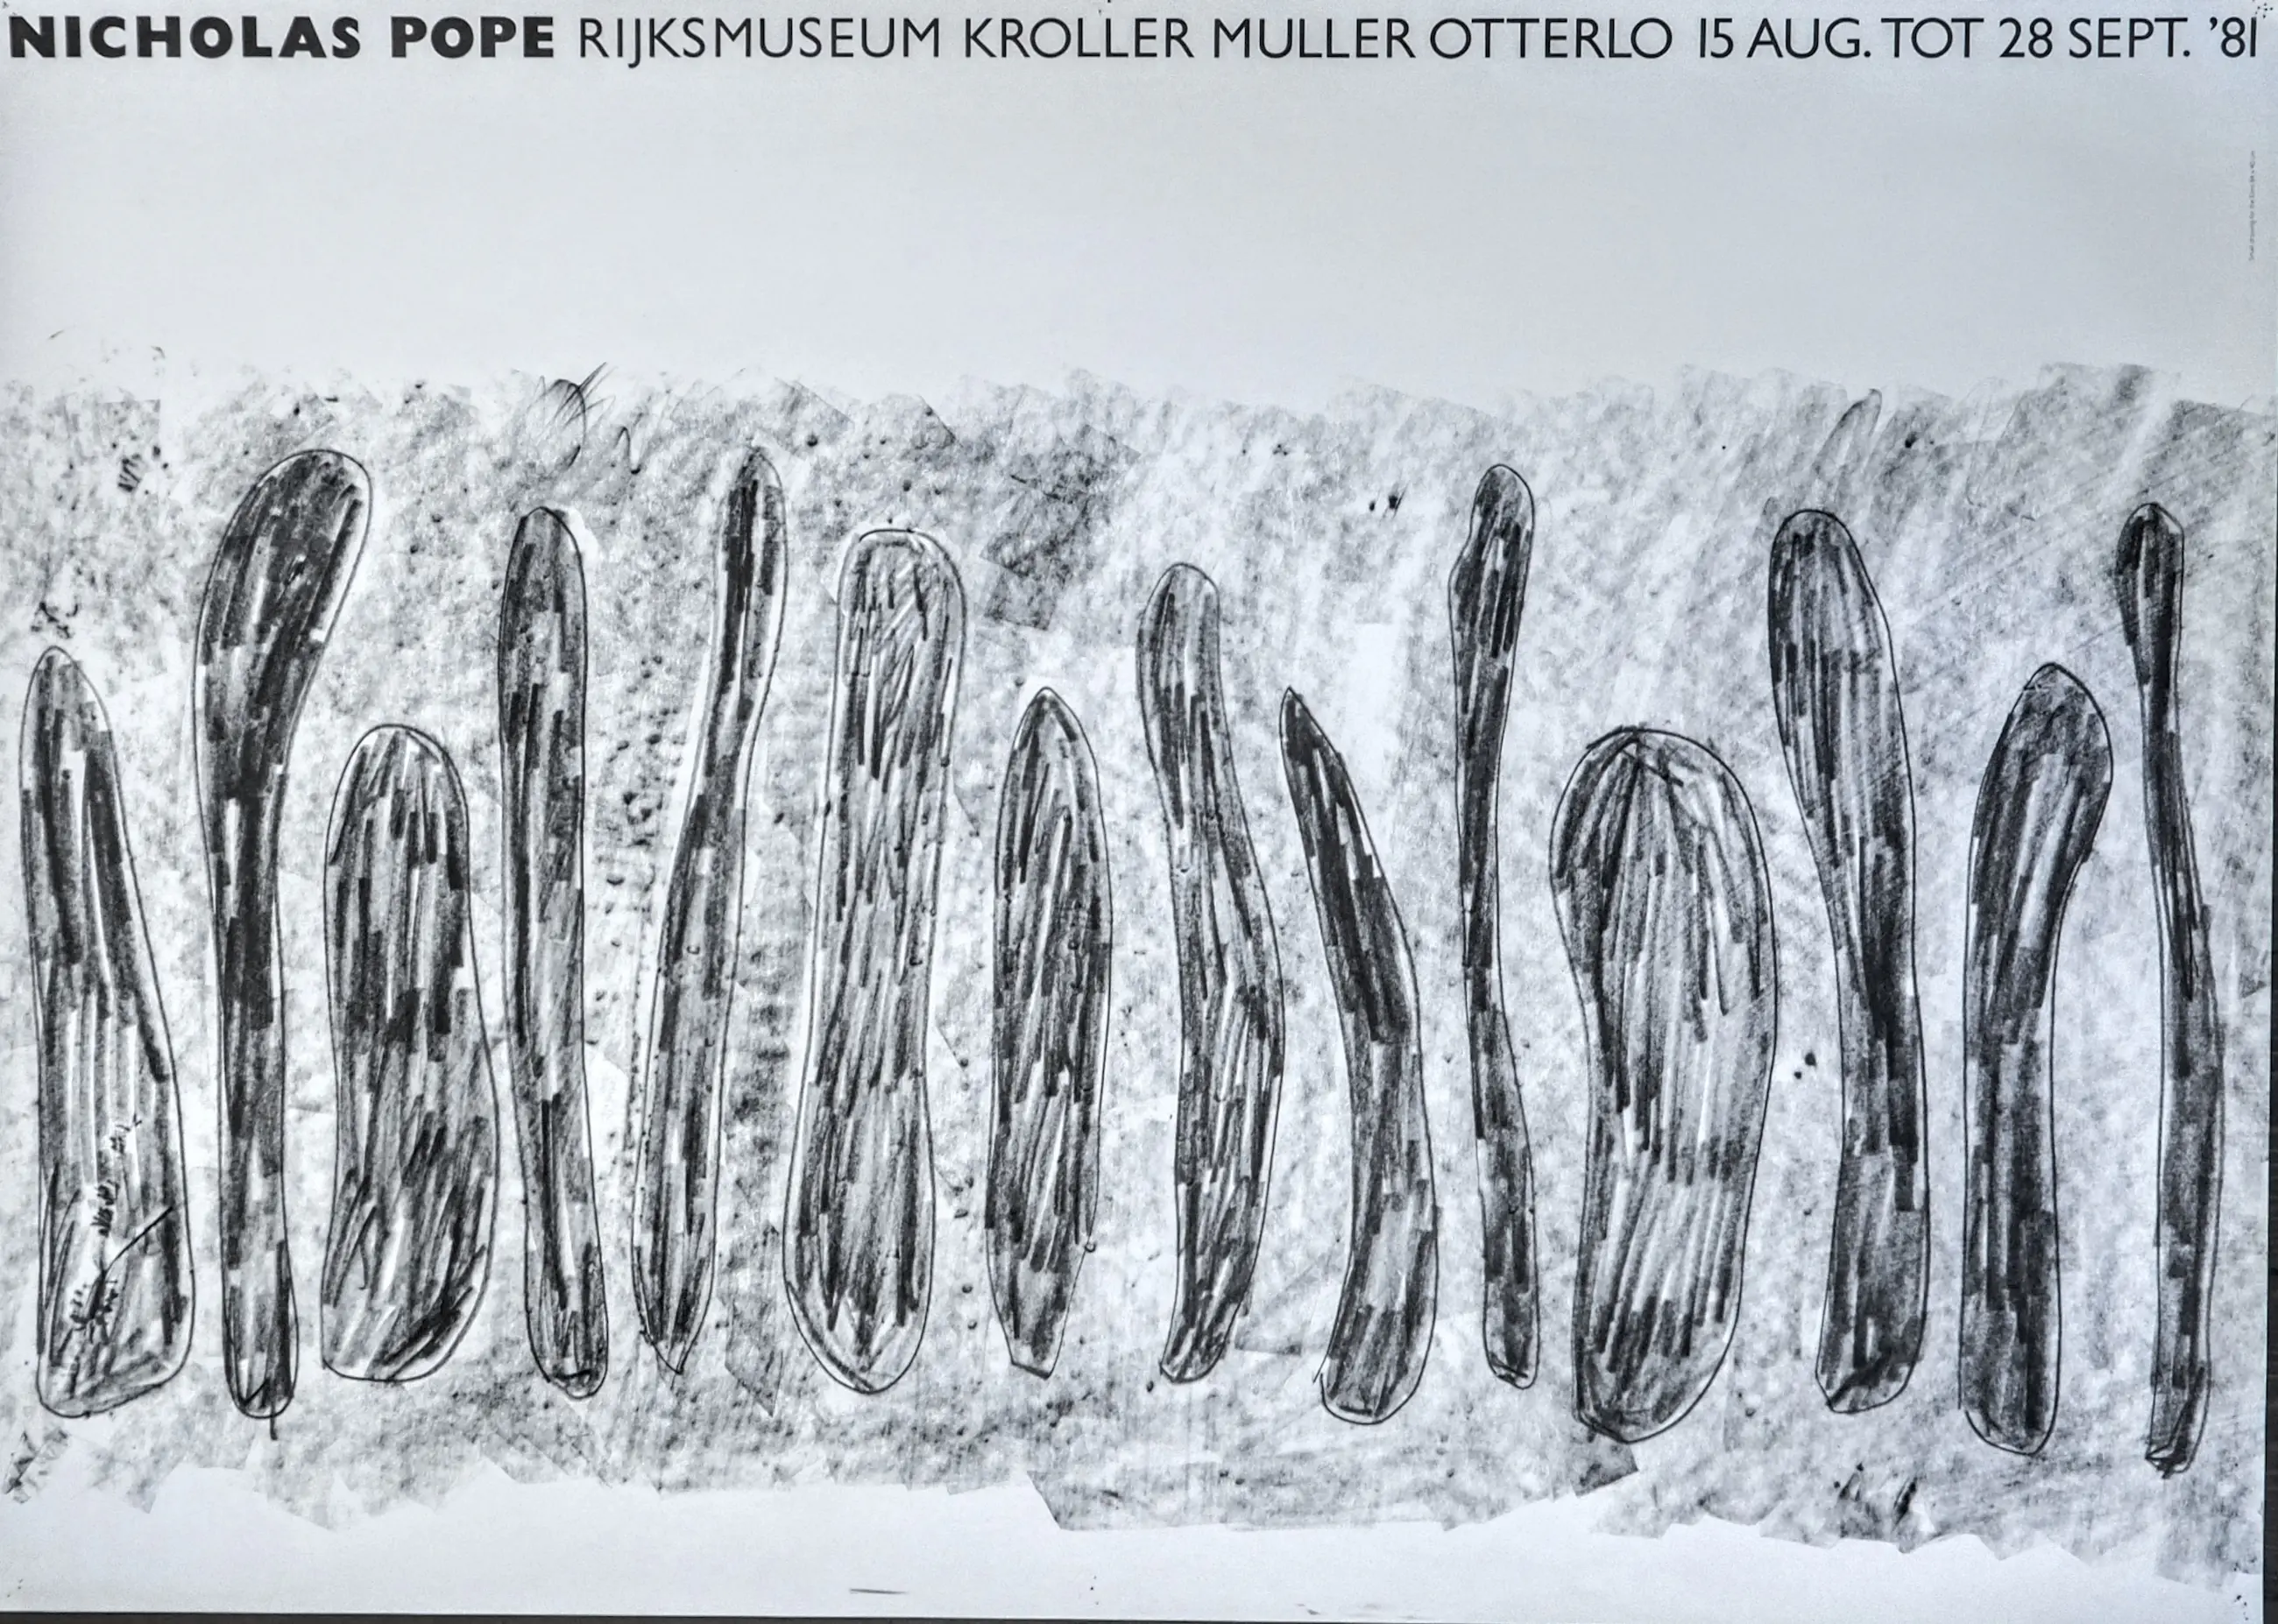 NICHOLAS POPE RIJKSMUSEUM KROLLER MULLER OTTERLO 15 AUG. TOT 28 SEPT. '81